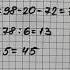 =98-20-72=
78:6=13
5=45